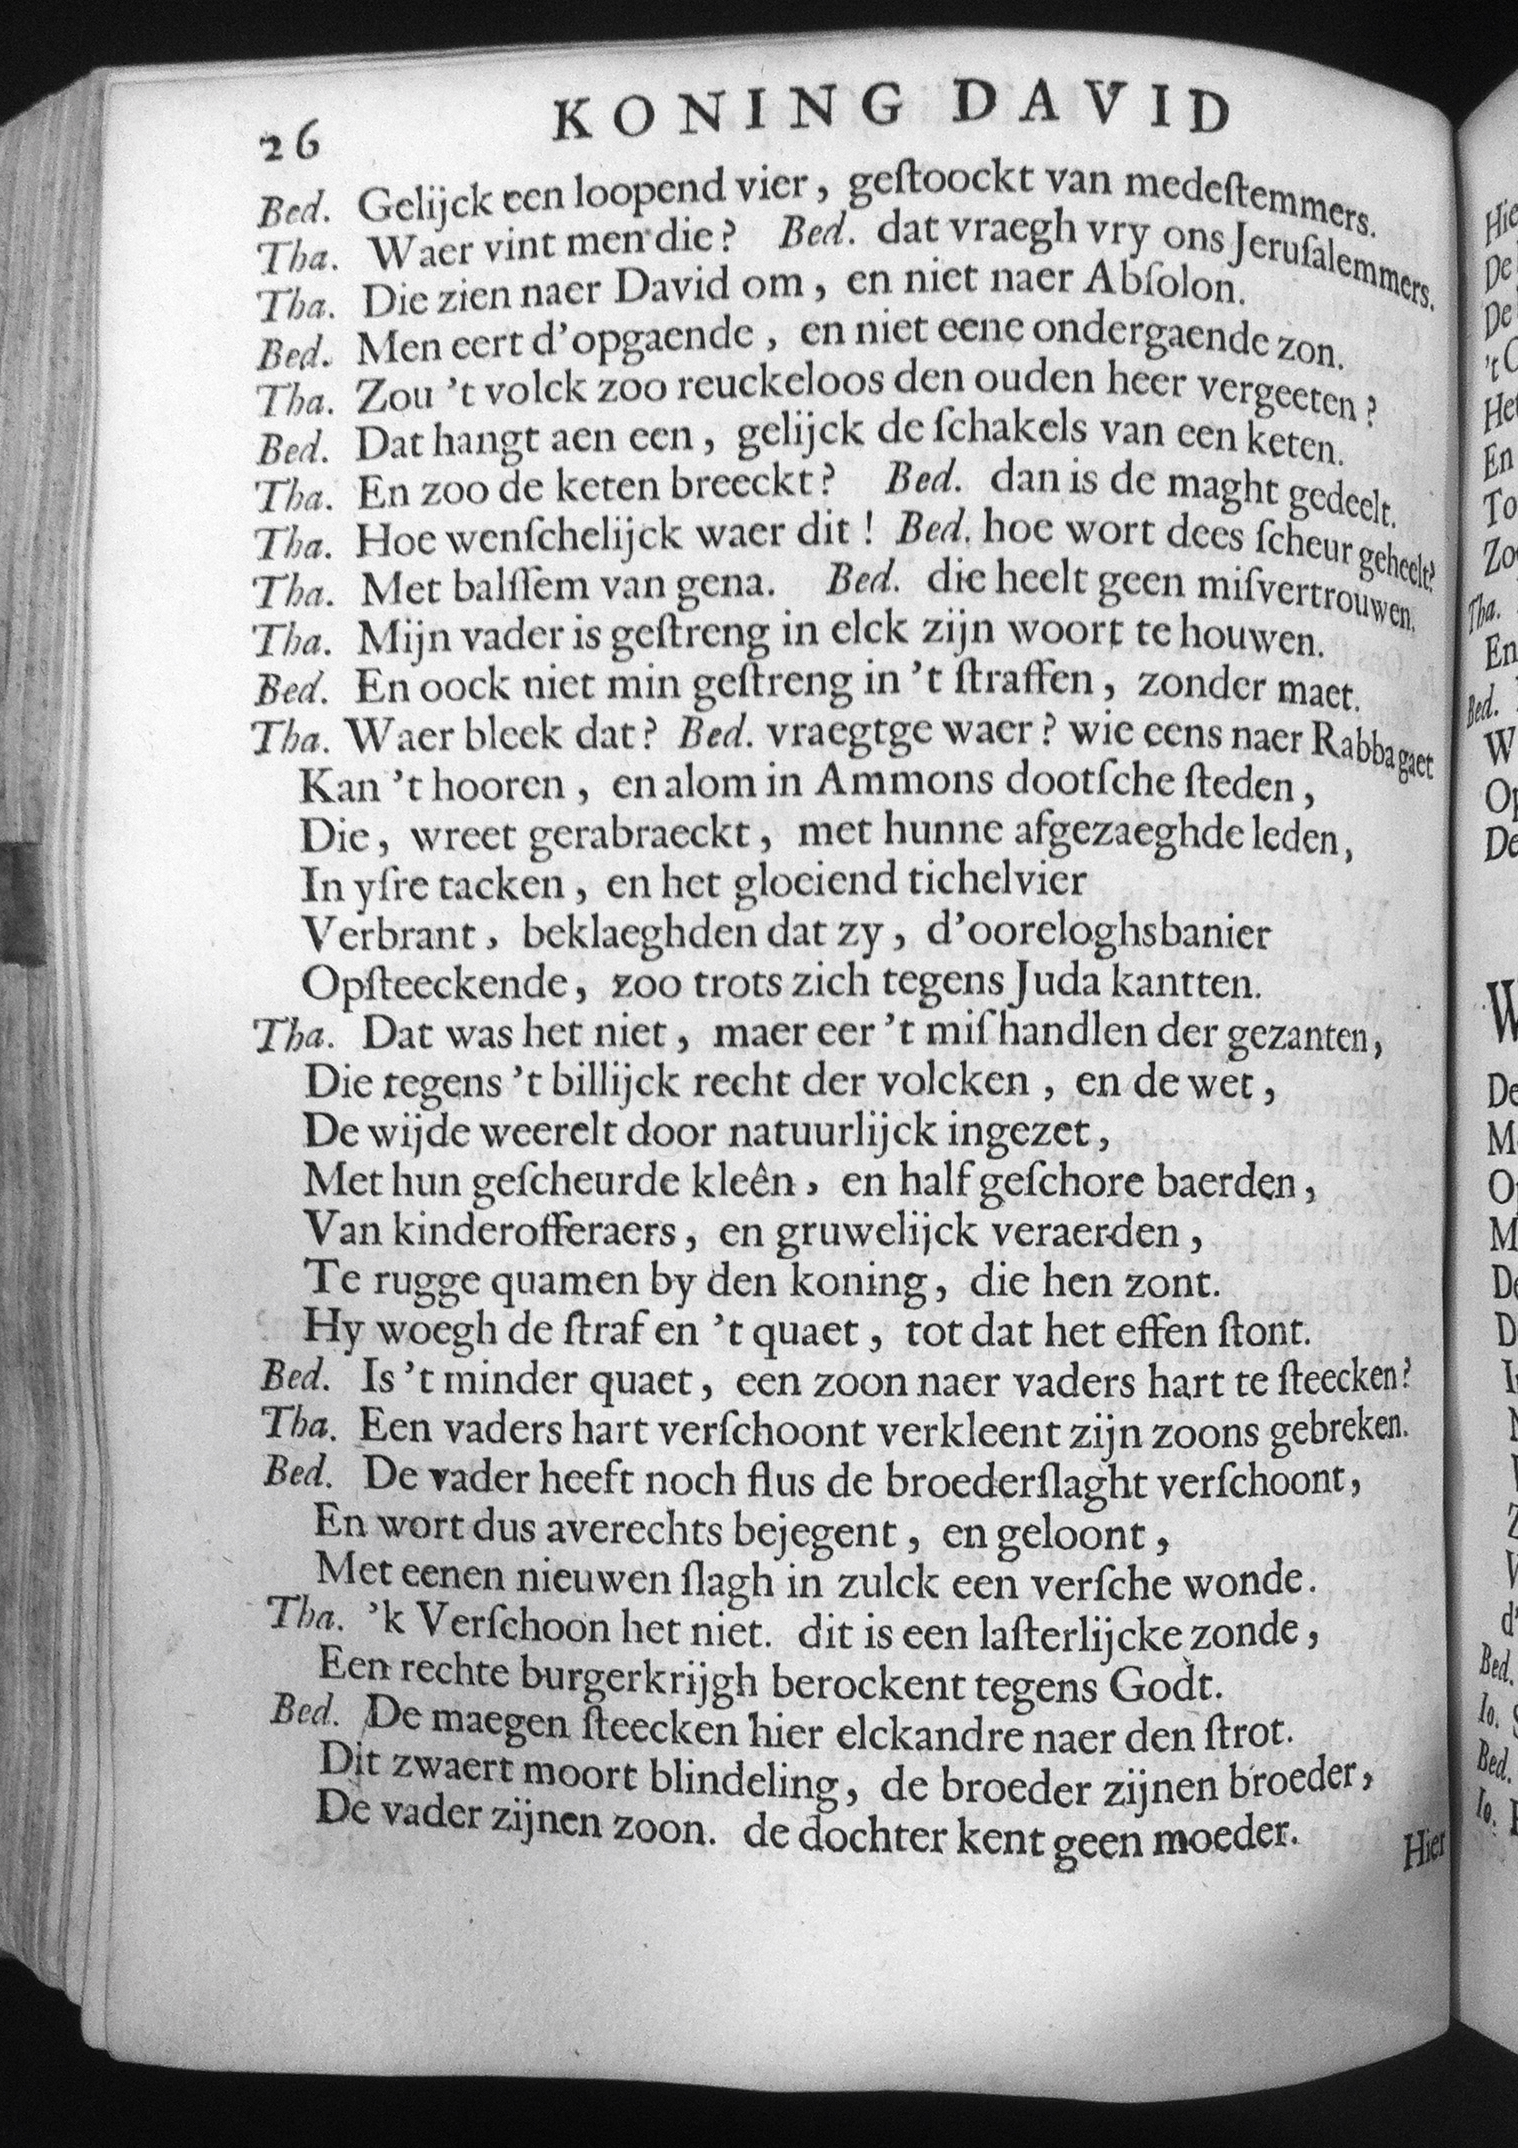 26 KONING DAVID
Bed. Gelijck een loopend vier, geſtoockt van medeſtemmers.
Tha. Waer vint men die? Bed. dat vraegh vry ons Jeruſalemmers.
Tha. Die zien naer David om, en niet naer Abſolon.
Bed. Men eert d'opgaende, en niet eene ondergaende zon.
Tha. Zou 't volck zoo reuckeloos den ouden heer vergeeten?
Bed. Dat hangt aen een, gelijck de ſchakels van een keten.
Tha. En zoo de keten breeckt? Bed. dan is de maght gedeelt.
Tha. Hoe wenſchelijck waer dit! Bed. hoe wort dees ſcheur geheelt?
Tha. Met balſſem van gena. Bed. die heelt geen miſvertrouwen.
Tha. Mijn vader is geſtreng in elck zijn woort te houwen.
Bed. En oock niet min geſtreng in 't ſtraffen, zonder maet.
Tha. Waer bleek dat? Bed. vraegtge waer? wie eens naer Rabba gaet
Kan 't hooren, en alom in Ammons dootſche ſteden,
Die, wreet gerabraeckt, met hunne afgezaeghde leden,
In yſre tacken, en het gloeiend tichelvier
Verbrant, beklaeghden dat zy, d'ooreloghsbanier
Opſteeckende, zoo trots zich tegens Juda kantten.
Tha. Dat was het niet, maer eer 't miſhandlen der gezanten,
Die tegens 't billijck recht der volcken, en de wet,
De wijde weerelt door natuurlijck ingezet,
Met hun geſcheurde kleên, en half geſchore baerden,
Van kinderofferaers, en gruwelijck veraerden,
Te rugge quamen by den koning, die hen zont.
Hy woegh de ſtraf en 't quaet, tot dat het effen ſtont.
Bed. Is 't minder quaet, een zoon naer vaders hart te ſteecken?
Tha. Een vaders hart verſchoont verkleent zijn zoons gebreken.
Bed. De vader heeft noch flus de broederſlaght verſchoont,
En wort dus averechts bejegent, en geloont,
Met eenen nieuwen ſlagh in zulck een verſche wonde.
Tha. 'k Verſchoon het niet. dit is een laſterlijcke zonde,
Een rechte burgerkrijgh berockent tegens Godt.
Bed. De maegen ſteecken hier elckandre naer den ſtrot.
Dit zwaert moort blindeling, de broeder zijnen broeder,
De vader zijnen zoon. de dochter kent geen moeder.
Hier